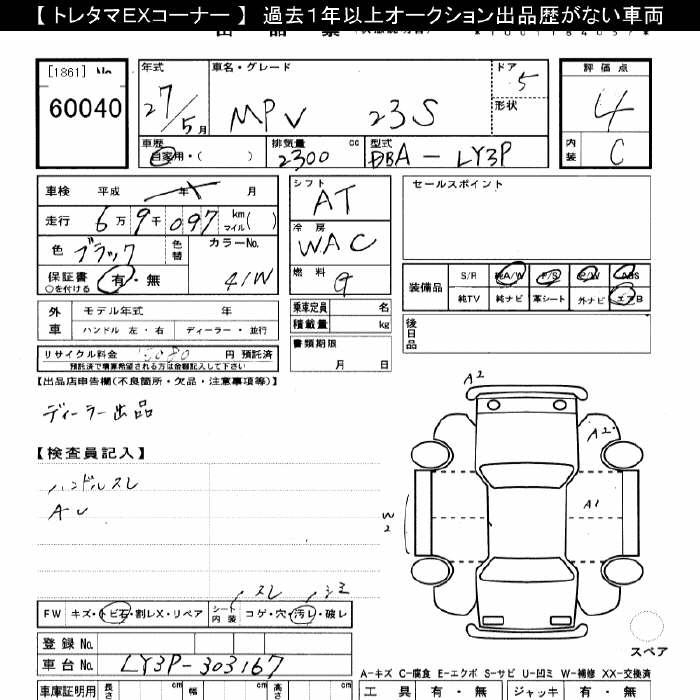 【 トレタマEXコーナー 】 過去1年以上オークション出品歴がない車両
[1861] No.
60040
年式 27/5月
車名・グレード MPV 23S
ドア 5
形状
評価点 4
内装 C
車歴 自家用・( )
排気量 2300 cc
型式 DBA-LY3P
車検 平成 年 月
走行 6万9千097 km マイル( )
色 ブラック 色替
カラーNo. 41W
保証書 ○を付ける 有・無
シフト AT
冷房 WAC
燃料 G
セールスポイント
装備品 S/R 純A/W P/S P/W ABS
純TV 純ナビ 革シート 外ナビ エアB
外車 モデル年式 年
ハンドル 左・右 ディーラー・並行
乗車定員 名
積載量 kg
後日品
リサイクル料金 円 預託済
預託済で積算希望される方は金額記入して下さい
書類期限 月 日
【出品店申告欄(不良箇所・欠品・注意事項等)】
ディーラー出品
【検査員記入】
ハンドルスレ
AU
A2
A2
A1
W2
スレ シミ
FW キズ・トビ石・割レX・リペア
シート内装 コゲ・穴・汚レ・破レ
登録No.
車台No. LY3P-303167
スペア
A-キズ C-腐食 E-エクボ S-サビ U-凹ミ W-補修 XX-交換済
車庫証明用 長さ cm 幅 cm 高さ cm
工具 有・無 ジャッキ 有・無